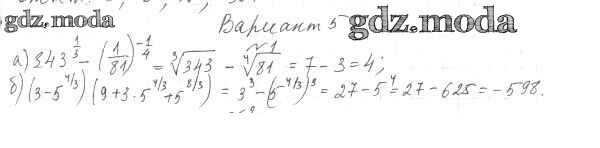 gdz.moda Вариант 5 gdz.moda
№1
а) 343^{1/3} - (1/81)^{-1/4} = ∛343 - ∜81 = 7 - 3 = 4;
б) (3-5^{4/3}) (9+3·5^{4/3}+5^{8/3}) = 3^3 - (5^{4/3})^3 = 27 - 5^4 = 27 - 625 = -598.